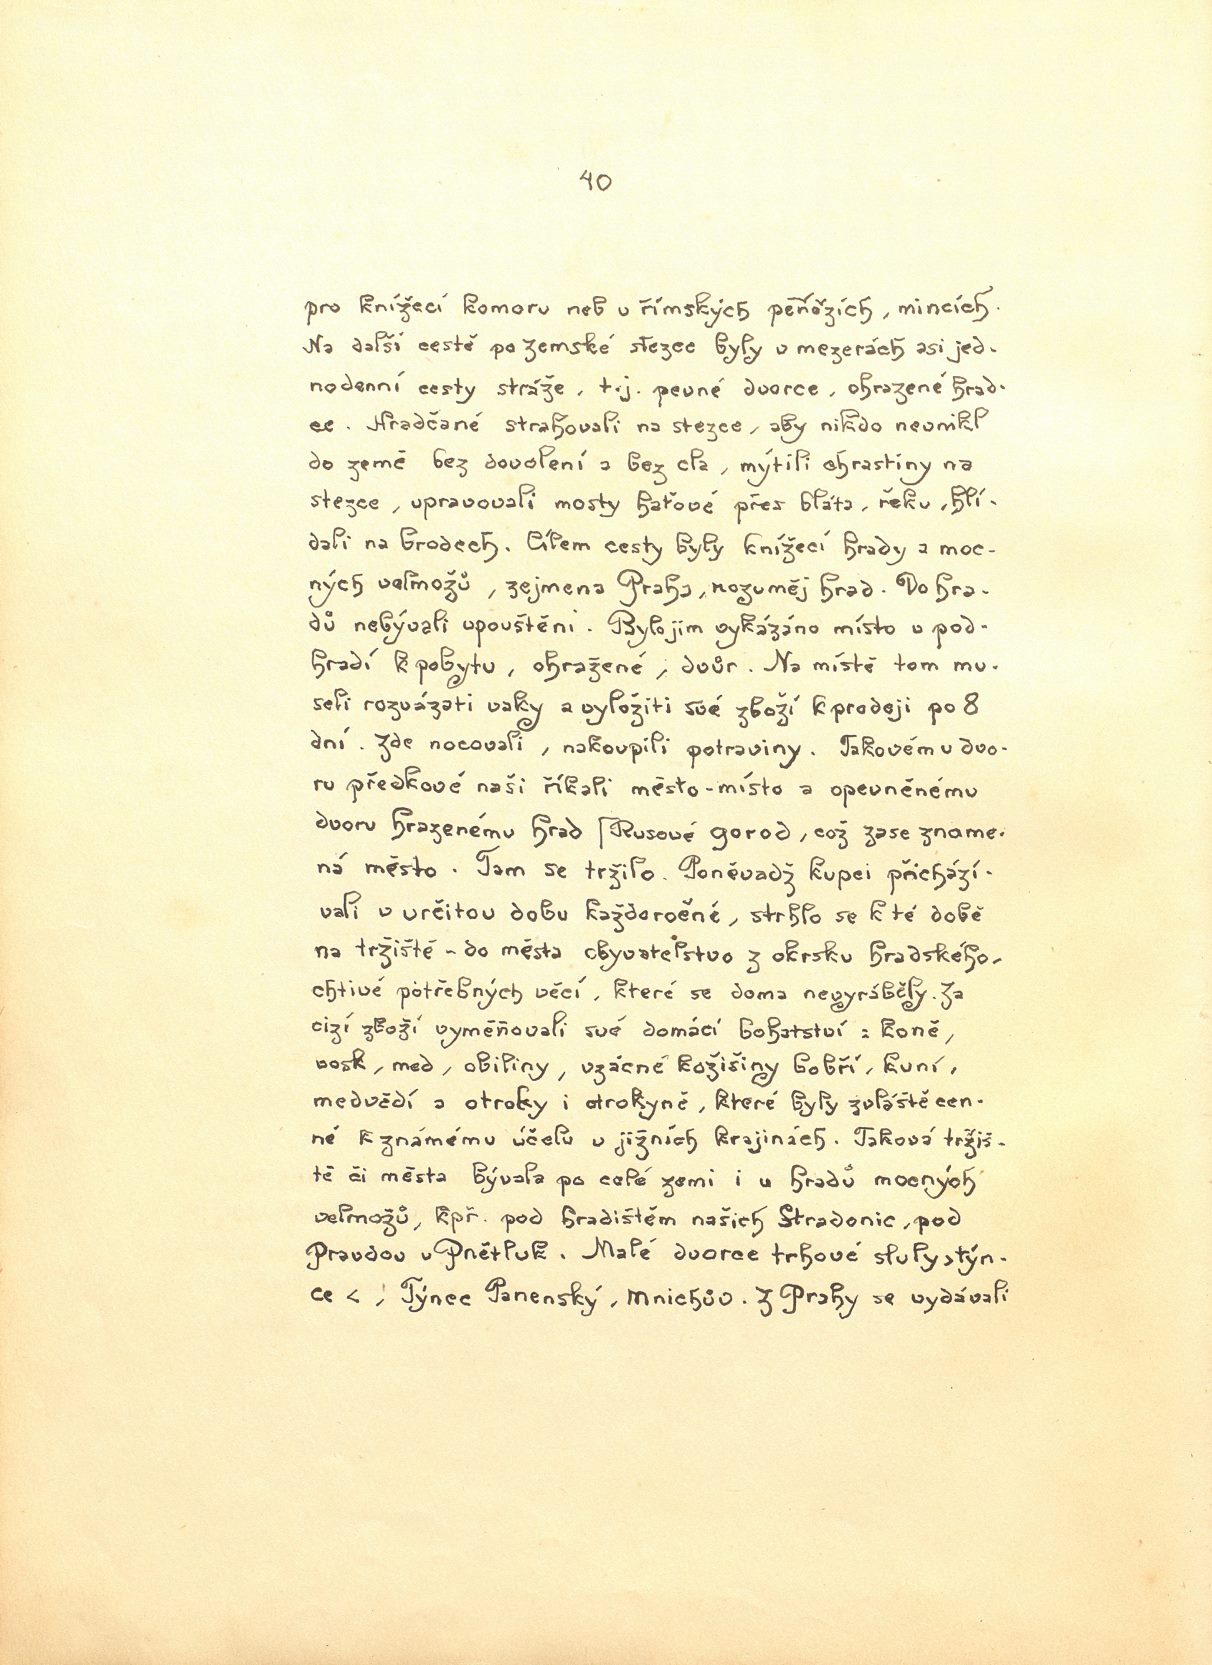 40
pro knížecí komoru neb v římských peňězích, mincích.
Na další cestě po zemské stezce byly v mezerách asi jed-
nodenní cesty stráže, t.j. pevné dvorce, ohrazené hrad-
ce. Hradčané strahovali na stezce, aby nikdo nevnikl
do země bez dovolení a bez cla, mýtili chrastiny na
stezce, upravovali mosty haťové přes bláta, řeku, hlí-
dali na brodech. Cílem cesty byly knížecí hrady a moc-
ných velmožů, zejmena Praha, rozuměj hrad. Do hra-
dů nebývali vpouštěni. Bylo jim vykázáno místo v pod-
hradí k pobytu, ohražené, dvůr. Na místě tom mu-
seli rozvázati vaky a vyložiti své zboží k prodeji po 8
dní. Zde nocovali, nakoupili potraviny. Takovému dvo-
ru předkové naši říkali město-místo a opevněnému
dvoru hrazenému hrad /Rusové gorod, což zase zname-
ná město. Tam se tržilo. Poněvadž kupci přichází-
vali v určitou dobu každoročně, strhlo se k té době
na tržiště - do města obyvatelstvo z okrsku hradského,
chtivé potřebných věcí, které se doma nevyráběly. Za
cizí zboží vyměňovali své domácí bohatství: koně,
vosk, med, obiliny, vzácné kožišiny bobří, kuní,
medvědí a otroky i otrokyně, které byly zvláště cen-
né k známému účelu v jižních krajinách. Taková tržiš-
tě či města bývala po celé zemi i u hradů mocných
velmožů, kpř. pod hradištěm našich Stradonic, pod
Pravdou v Pnětluk. Malé dvorce trhové sluly >týn-
ce <, Týnec Panenský, Mnichův. Z Prahy se vydávali